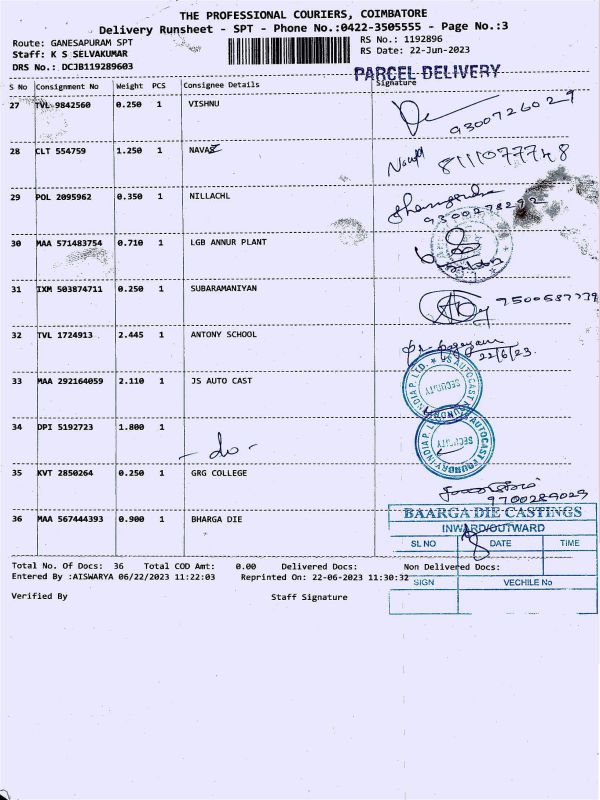 THE PROFESSIONAL COURIERS, COIMBATORE
Delivery Runsheet - SPT - Phone No.:0422-3505555 - Page No.:3
Route: GANESAPURAM SPT RS No.: 1192896
Staff: K S SELVAKUMAR RS Date: 22-Jun-2023
DRS No.: DCJB119289603
PARCEL DELIVERY
S No Consignment No Weight PCS Consignee Details Signature
27 TVL 9842560 0.250 1 VISHNU
9300726029
28 CLT 554759 1.250 1 NAVAZ
8111077748
29 POL 2095962 0.350 1 NILLACHL
9300278272
30 MAA 571483754 0.710 1 LGB ANNUR PLANT
31 IXM 503874711 0.250 1 SUBARAMANIYAN
32 TVL 1724913 2.445 1 ANTONY SCHOOL
22/6/23.
33 MAA 292164059 2.110 1 JS AUTO CAST
JS AUTOCAST FOUNDRY INDIA P. LTD.
SECURITY
34 DPI 5192723 1.800 1
- do -
JS AUTOCAST FOUNDRY INDIA P. LTD.
SECURITY
35 KVT 2850264 0.250 1 GRG COLLEGE
9700289029
36 MAA 567444393 0.900 1 BHARGA DIE
BAARGA DIE CASTINGS
INWARD/OUTWARD
SL NO DATE TIME
SIGN VECHILE No
Total No. Of Docs: 36 Total COD Amt: 0.00 Delivered Docs: Non Delivered Docs:
Entered By :AISWARYA 06/22/2023 11:22:03 Reprinted On: 22-06-2023 11:30:32
Verified By Staff Signature